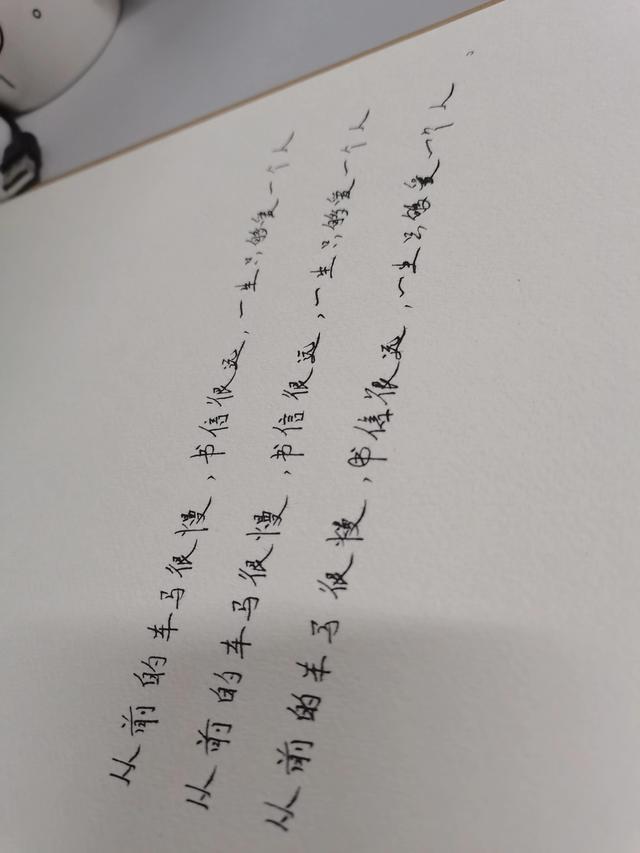 从前的车马很慢，书信很远，一生只够爱一个人
从前的车马很慢，书信很远，一生只够爱一个人
从前的车马很慢，书信很远，一生只够爱一个人。